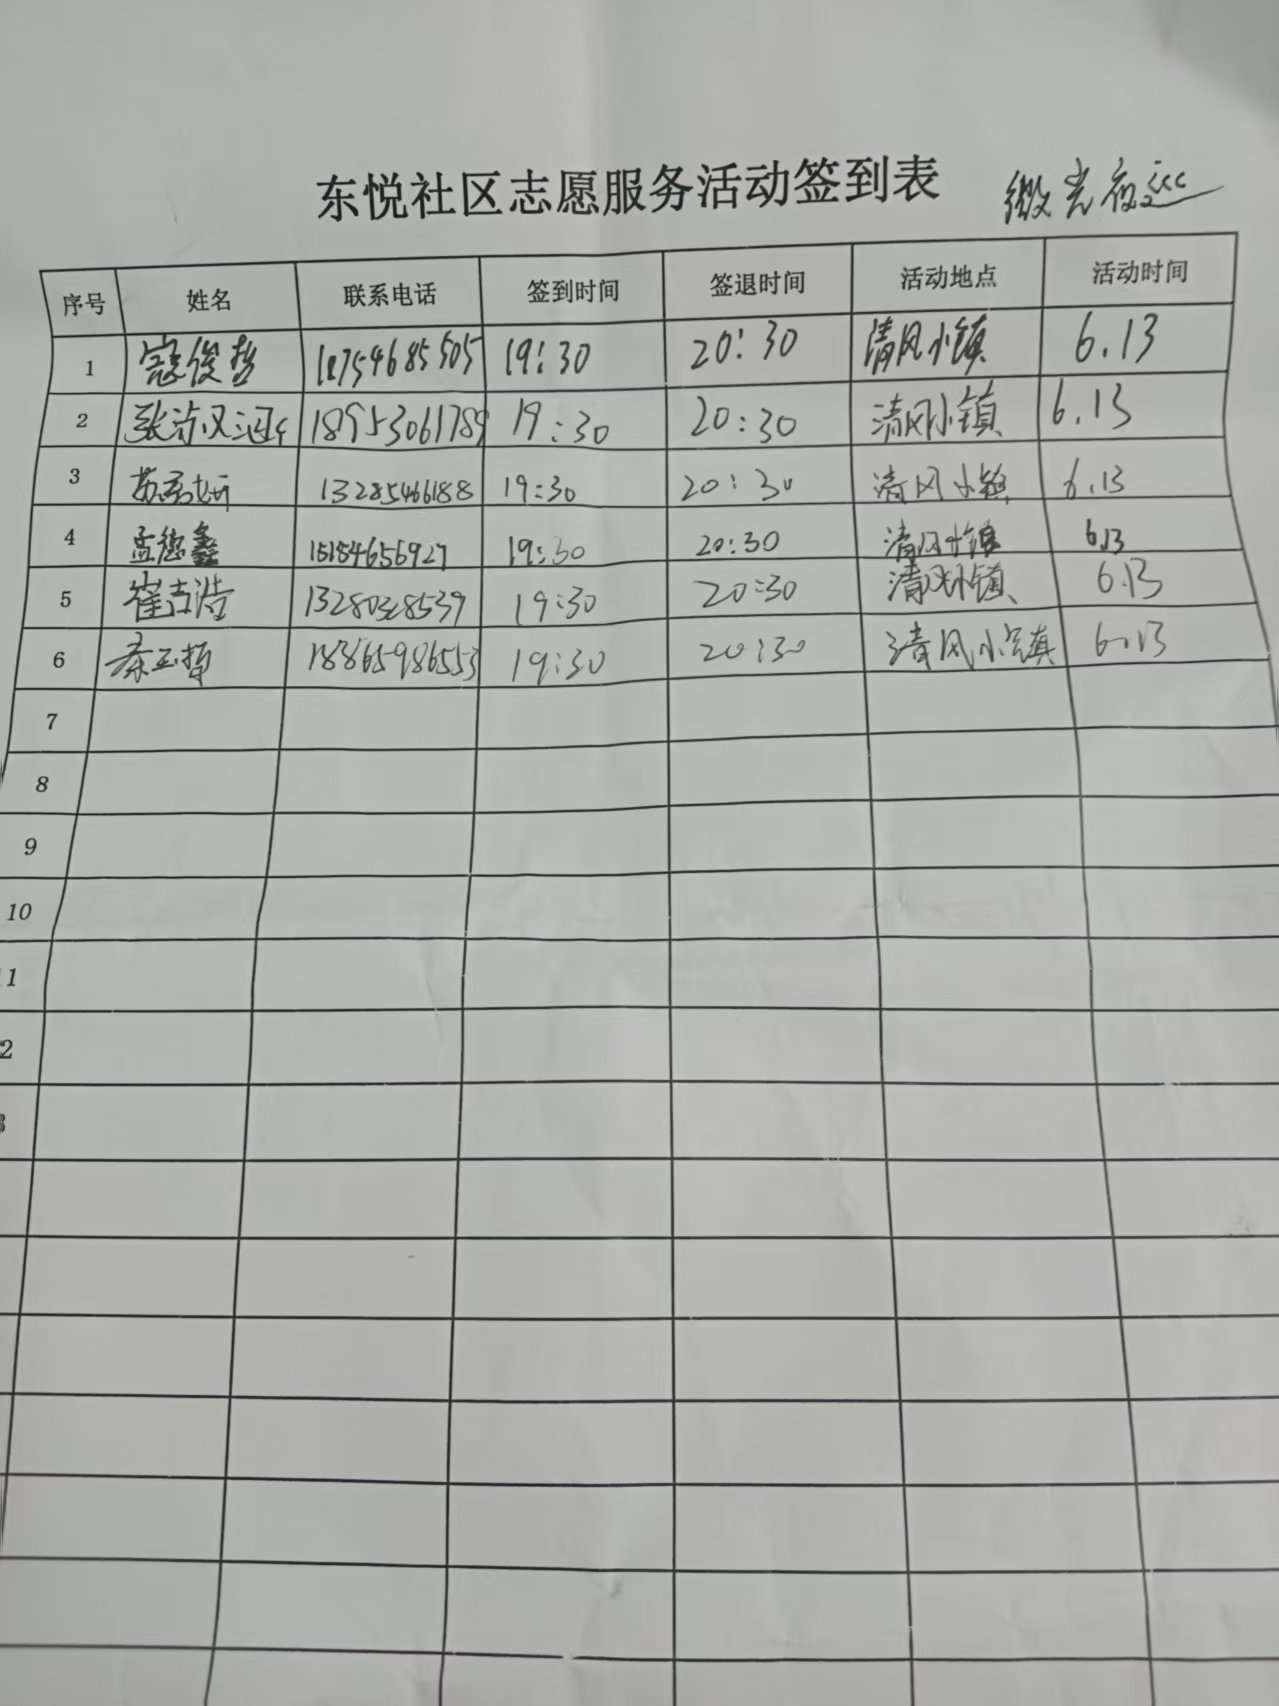 东悦社区志愿服务活动签到表 微光夜巡
序号 姓名 联系电话 签到时间 签退时间 活动地点 活动时间
1 寇俊哲 18754685505 19:30 20:30 清风小镇 6.13
2 18953061789 19:30 20:30 清风小镇 6.13
3 13285466188 19:30 20:30 清风小镇 6.13
4 孟德鑫 15184656927 19:30 20:30 清风小镇 6.13
5 崔吉浩 13280328539 19:30 20:30 清风小镇 6.13
6 秦玉哲 18865986553 19:30 20:30 清风小镇 6.13
7
8
9
10